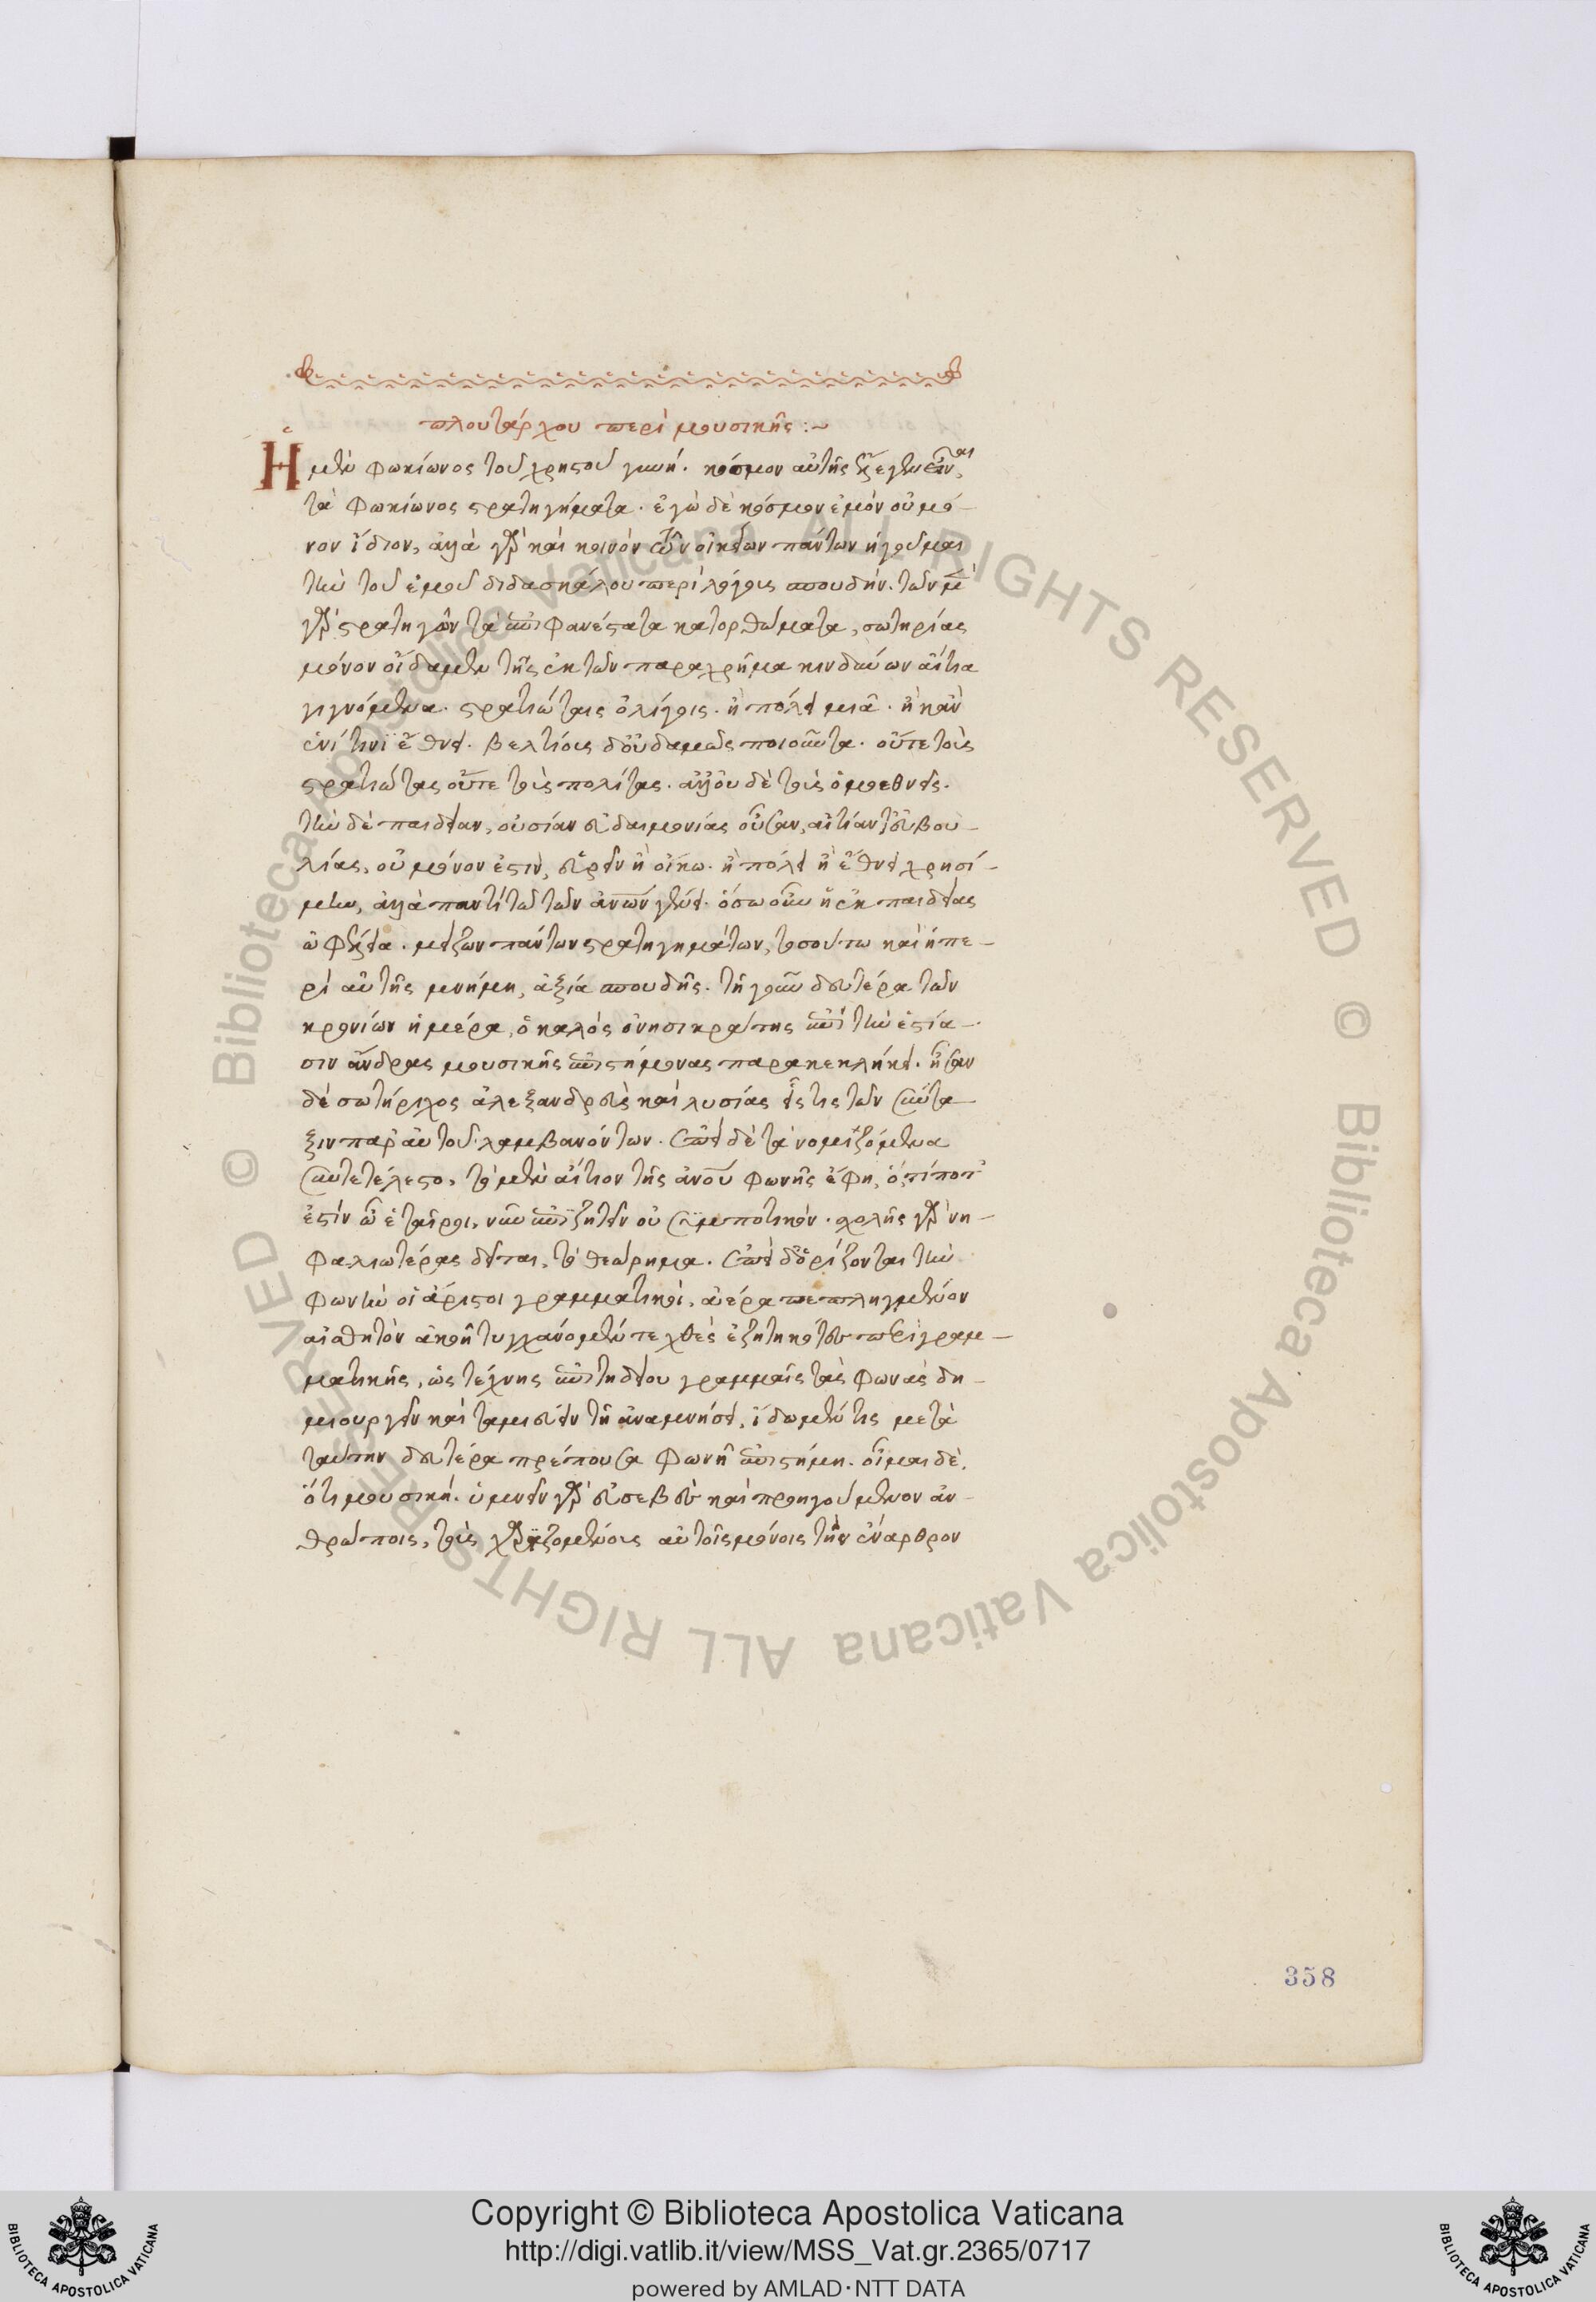 πλουτάρχου περὶ μουσικῆς :~
Ἡ μὲν φωκίωνος τοῦ χρηστοῦ γυνή. κόσμον αὐτῆς ἔλεγεν εἶναι,
τὰ φωκίωνος στρατηγήματα. ἐγὼ δὲ κόσμον ἐμὸν οὐ μό-
νον ἴδιον, ἀλλὰ γὰρ καὶ κοινὸν τῶν οἰκείων πάντων ἡγοῦμαι
τὴν τοῦ ἐμοῦ διδασκάλου περὶ λόγοις σπουδήν. τῶν μὲν
γὰρ στρατηγῶν τὰ ἐπιφανέστατα κατορθώματα, σωτηρίας
μόνον οἴδαμεν τῆς ἐκ τῶν παραχρῆμα κινδύνων αἴτια
γιγνόμενα. στρατιώταις ὀλίγοις. ἢ πόλει μιᾷ. ἢ κἂν
ἑνί τινι ἔθνει. βελτίους δ' οὐδαμῶς ποιοῦντα. οὔτε τοὺς
στρατιώτας οὔτε τοὺς πολίτας. ἀλλ' οὐδὲ τοὺς ὁμοεθνεῖς.
τὴν δὲ παιδείαν, οὐσίαν εὐδαιμονίας οὖσαν, αἰτίαν τ' εὐβου-
λίας, οὐ μόνον ἐστὶν, εὑρεῖν ἢ οἴκω. ἢ πόλει ἢ ἔθνει χρησί-
μην, ἀλλὰ παντὶ τῷ τῶν ἀνων γένει. ὅσω οὖν ἡ ἐκ παιδείας
ὠφέλεια. μείζων πάντων στρατηγημάτων, τοσούτω καὶ ἡ πε-
ρὶ αὐτῆς μνήμη, ἀξία σπουδῆς. τῇ γοῦν δευτέρα τῶν
κρονίων ἡμέρα, ὁ καλὸς ὀνησικράτης ἐπὶ τὴν ἑστία-
σιν ἄνδρας μουσικῆς ἐπιστήμονας παρακεκλήκει. ἦσαν
δὲ σωτήριχος ἀλεξανδρεὺς καὶ λυσίας εἷς τις τῶν σύντα-
ξιν παρ' αὐτοῦ λαμβανόντων. ἐπεὶ δὲ τὰ νομιζόμενα
συντετέλεστο, τὸ μὲν αἴτιον τῆς ἀνου φωνῆς ἔφη, ὅ,τί ποτ'
ἐστὶν ὦ ἑταῖροι, νῦν ἐπιζητεῖν οὐ συμποτικόν. σχολῆς γὰρ νη-
φαλιωτέρας δεῖται, τὸ θεώρημα. ἐπεὶ δ' ὁρίζονται τὴν
φωνὴν οἱ ἄριστοι γραμματικοὶ, ἀέρα πεπληγμένον
αἰσθητὸν ἀκοῇ τυγχάνομέν τε χθὲς ἐζητηκότες περὶ γραμ-
ματικῆς, ὡς τέχνης ἐπιτηδείου γραμμαῖς τὰς φωνὰς δη-
μιουργεῖν καὶ ταμιεύειν τῇ ἀναμνήσει, ἴδωμεν τίς μετὰ
ταύτην δευτέρα πρέπουσα φωνῇ ἐπιστήμη. οἶμαι δὲ,
ὅτι μουσική. ὑμνεῖν γὰρ εὐσεβὲς καὶ προηγούμενον ἀν-
θρώποις, τοὺς χαρισομένους αὐτοῖς μόνοις τὴν ἔναρθρον
358
© Biblioteca Apostolica Vaticana ALL RIGHTS RESERVED © Biblioteca Apostolica Vaticana ALL RIGHTS RESERVED
BIBLIOTECA APOSTOLICA VATICANA
Copyright © Biblioteca Apostolica Vaticana
http://digi.vatlib.it/view/MSS_Vat.gr.2365/0717
powered by AMLAD·NTT DATA
BIBLIOTECA APOSTOLICA VATICANA